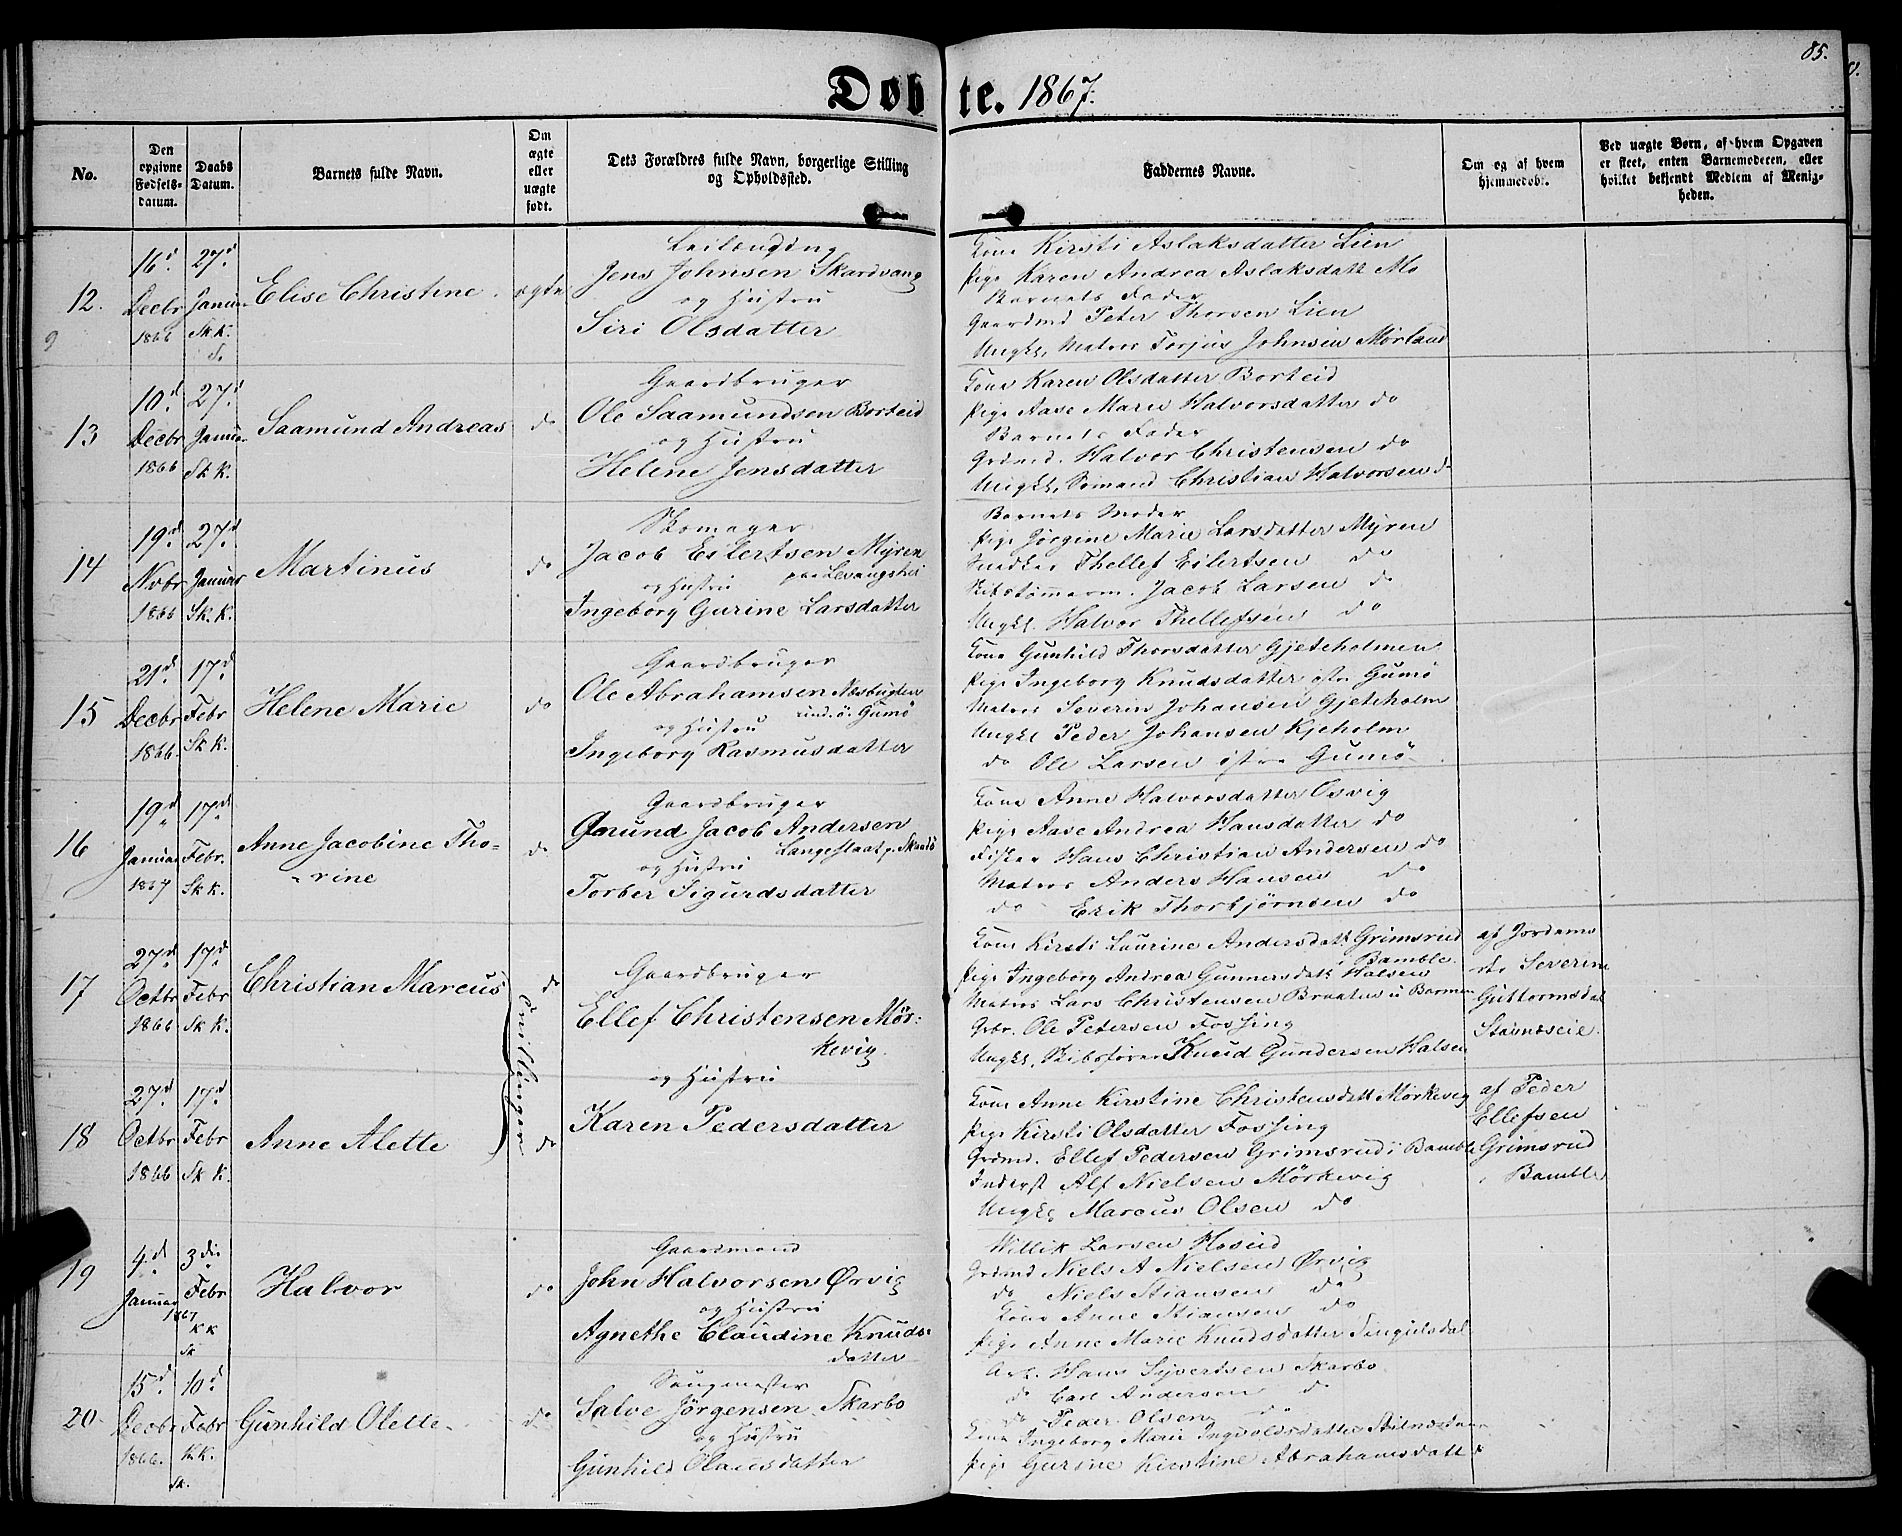 85.
Døbte. 1867.
No.
Den opgivne Fødsels-datum.
Daabs Datum.
Barnets fulde Navn.
Om ægte eller uægte født.
Dets Forældres fulde Navn, borgerlige Stilling og Opholdssted.
Faddernes Navne.
Om og af hvem hjemmedøbt.
Ved uægte Børn, af hvem Opgaven er skeet, enten Barnemoderen, eller hvilket bekjendt Medlem af Menigheden.
12.
16d. Decbr 1866
27d. Januar Sk K.
Elise Christine.
ægte
Leilending
Jens Johnsen Skardvang
og Hustru
Siri Olsdatter
Kone Kirsti Aslaksdatter Lien
Pige Karen Andrea Aslaksdatt Mo
Barnets Fader
Gaardmd Peter Thorsen Lien
Ungk. Matros Torjus Johnsen Mørland
13
10d. Decbr 1866
27d. Januar Sk K.
Saamund Andreas
do
Gaardbruger
Ole Saamundsen Borteid
og Hustru
Helene Jensdatter
Kone Karen Olsdatter Borteid
Pige Aase Marie Halvorsdatter do
Barnets Fader
Grdmd. Halvor Christensen do
Ungk. Sømand Christian Halvorsen do
14
19d. Nvbr 1866
27d Januar Sk. K.
Martinus
do
Skomager
Jacob Eilertsen Myren
paa Levangshei
og Hustru
Ingeborg Gurine Larsdatter
Barnets Moder
Pige Jørgine Marie Larsdatter Myren
Snedker Thellef Eilertsen do
Skibstømmerm. Jacob Larsen do
Ungk. Halvor Thellefsen do
15
21d. Decbr 1866.
17d Febr Sk K.
Helene Marie
do
Gaardbruger
Ole Abrahamsen Næsbugten
ind. ö. Gumö
og Hustru
Ingeborg Rasmusdatter
Kone Gunhild Thorsdatter Gjeteholmen
Pige Ingeborg Knudsdatter østre Gumö
Matros Severin Johansen Gjeteholm
Ungk. Peder Johansen Kjeholm
do Ole Larsen østre Gumö
16
19d Januar 1867
17d Febr. Sk K.
Anne Jacobine Thorine
do
Gaardbruger
Gmund Jacob Andersen
Langestaat p. Skaadö
og Hustru
Torber Sigurdsdatter
Kone Anne Halvorsdatter Osvig
Pige Aase Andrea Hansdatter do
Fisker Hans Christian Andersen do
Matros Anders Hansen do
do Erik Thorbjørnsen do
17
27d Octbr 1866
17d Febr Sk K.
Christian Marcus
do
Tvillinger
Gaardbruger
Ellef Christensen Mørkevig.
og Hustru
Karen Pedersdatter
Kone Kirsti Laurine Andersdatt Grimsrud
Bamble.
Pige Ingeborg Andrea Gunnersdatt Halsen
Matros Lars Christensen Braaten i Barmen
Grbr. Ole Petersen Fossing
Ungk. Skibsfører Knud Gundersen Halsen
af Jordemoder Severine Guttormsdat Stavnæseie.
18
27d Octbr 1866
17d Febr Sk K.
Anne Alette
do
Kone Anne Kirstine Christensdatt Mørkevig
Pige Kirsti Olsdatter Fossing
Grdmd. Ellef Pedersen Grimsrud i Bamble
Inderst Alf Nielsen Mörkevig
Ungk. Marcus Olsen do
af Peder Ellefsen Grimsrud i Bamble
19
4d Januar 1867
3die Febr KK Sk
Halvor
do
Gaardmand
John Halvorsen Ørvig
og Hustru
Agnethe Claudine Knudsdatter
Willik Larsen Høseid
Grdmd Niels A Nielsen Ørvig
do Niels Stiansen do
Kone Anne Stiansen do
Pige Anne Marie Knudsdatter Tingulsdal
20.
15d Decbr 1866.
10d Febr K.K. Sk.
Gunhild Olette.
do
Saugmester
Salve Jörgensen Skarbo
og Hustru
Gunhild Olausdatter
Arb. Hans Syvertsen Skarbo
do Carl Andersen do
do Peder Olsen do
Kone Ingeborg Marie Ingvoldsdatter
Pige Gurine Kirstine Abrahamsdatt do